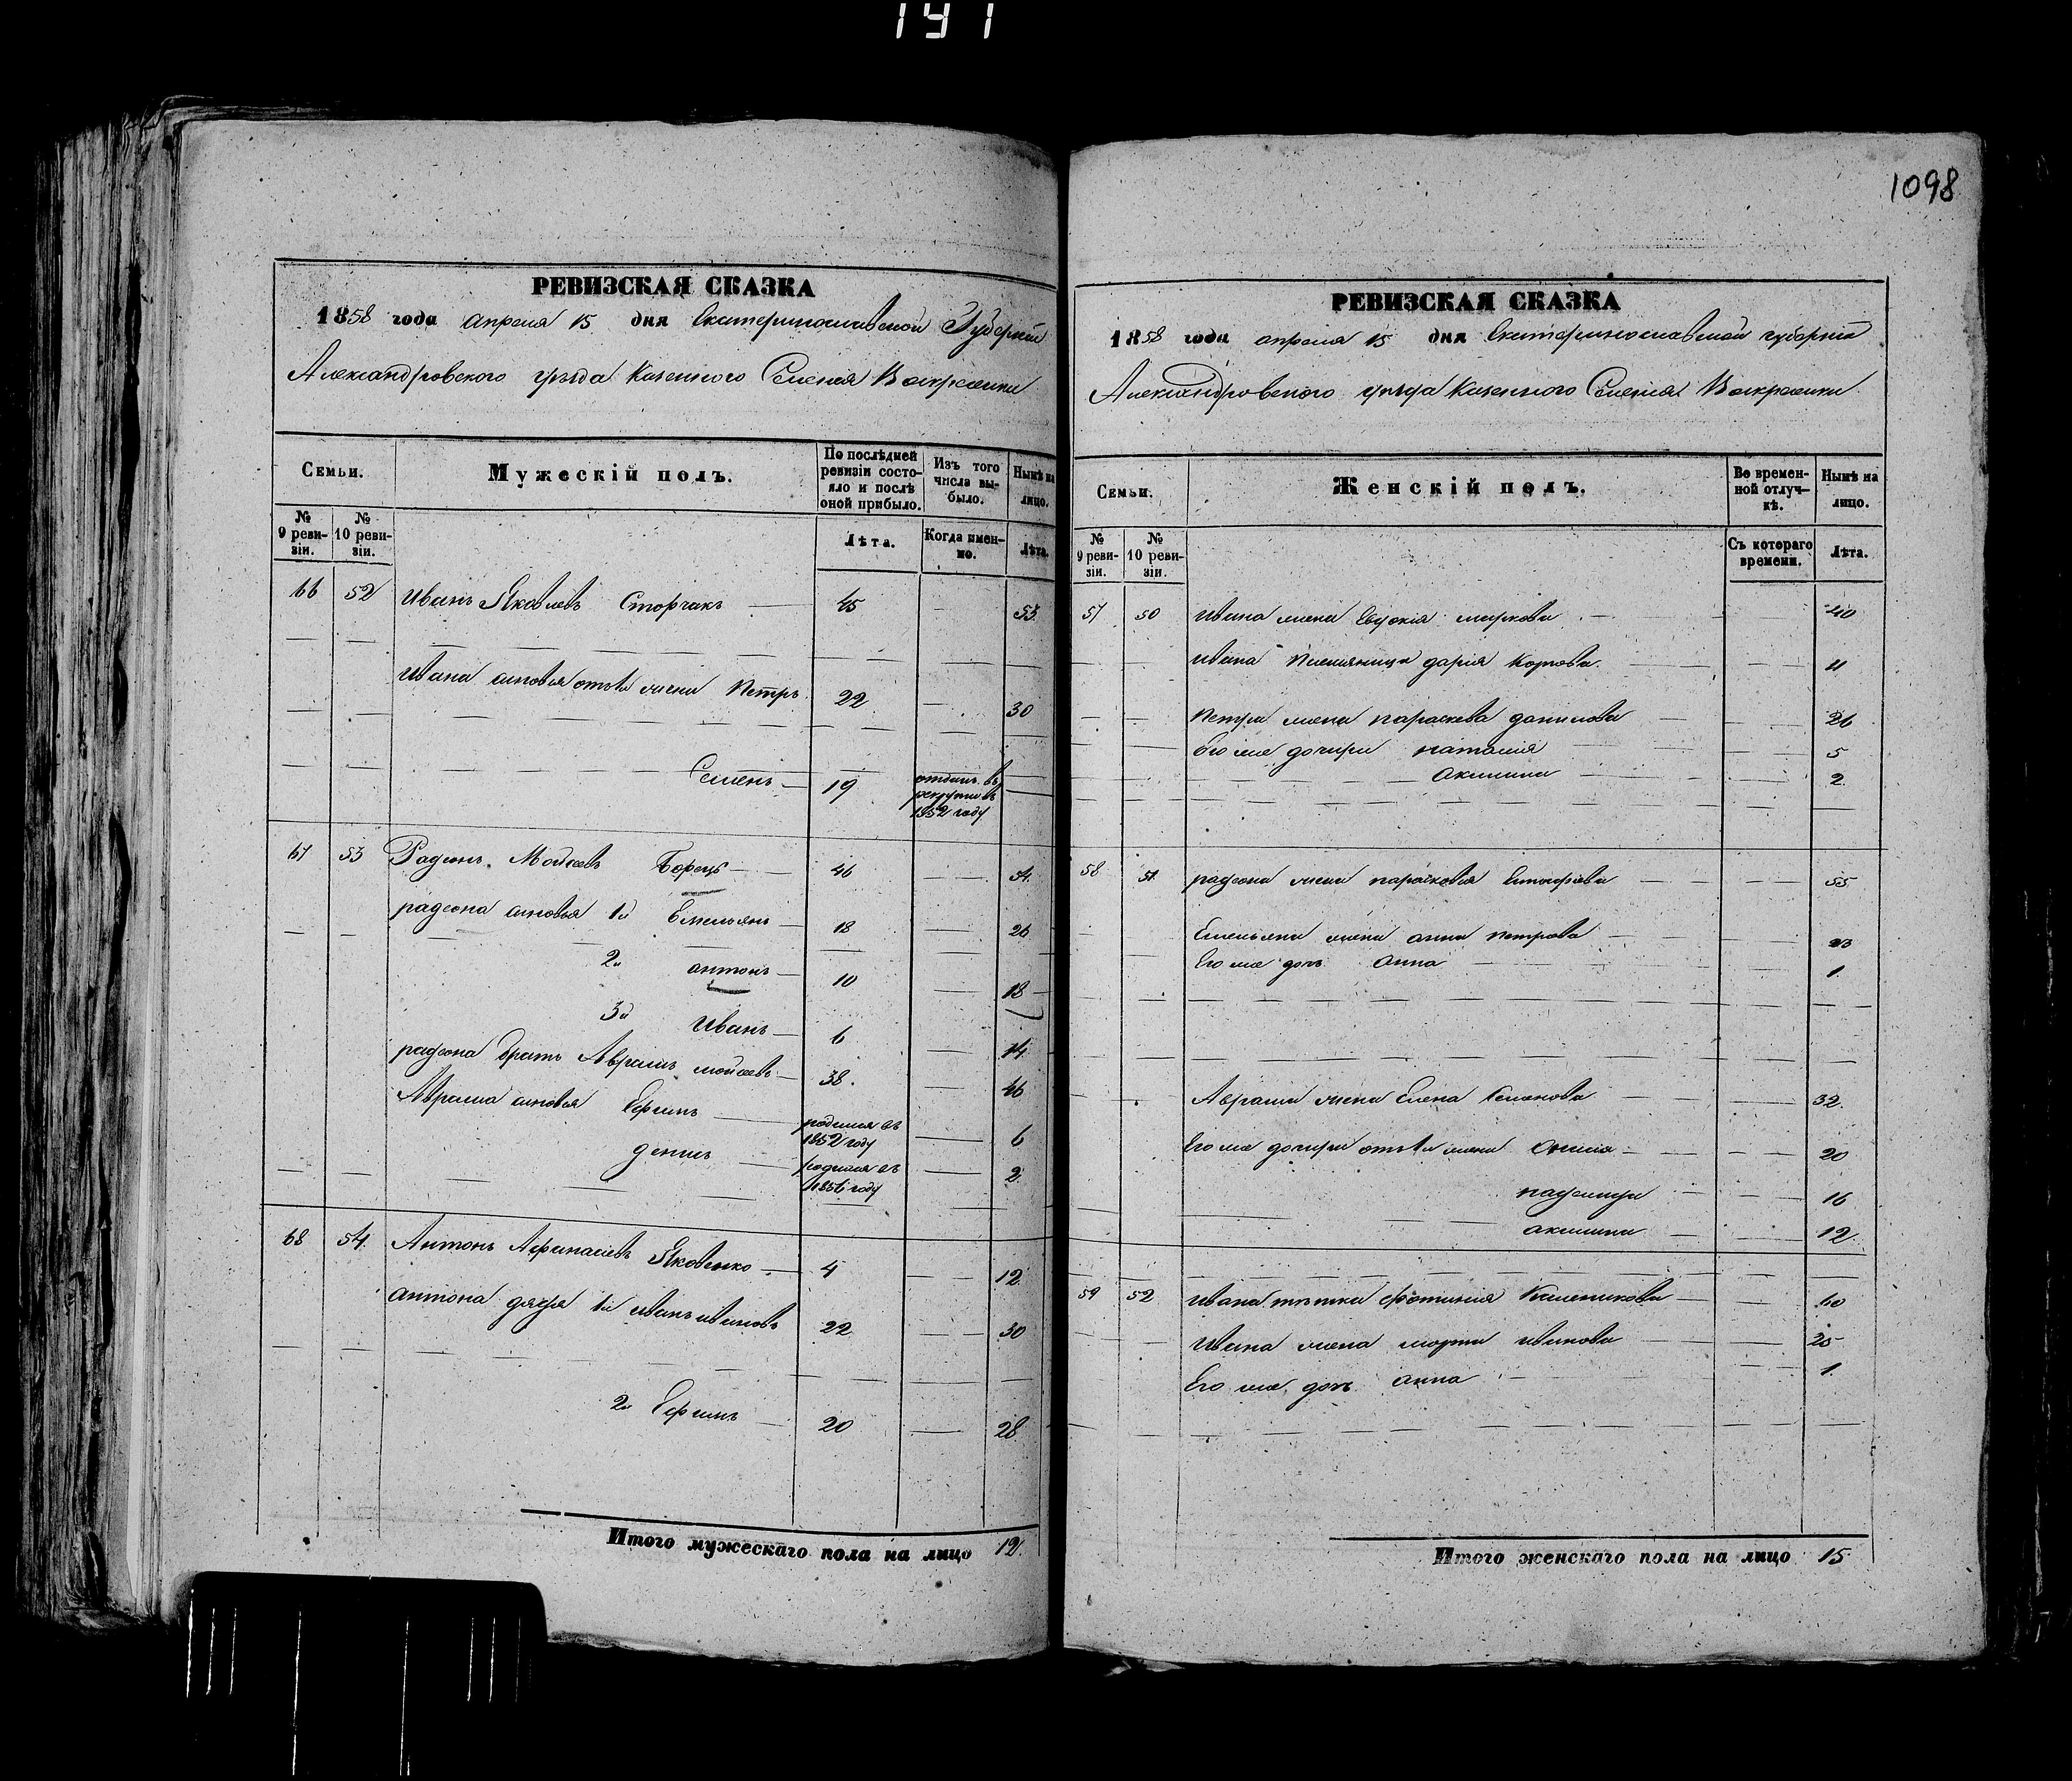 191
1098
РЕВИЗСКАЯ СКАЗКА
1858 года апреля 15 дня Екатеринославской Губернiи
Александровского уезда Казенного Селения Воскресенки
Семьи.
Мужескiй полъ.
По послѣдней ревизiи состояло и послѣ оной прибыло.
Изъ того числа выбыло.
Нынѣ на лицо.
№ 9 ревизiи.
№ 10 ревизiи.
Лѣта.
Когда именно.
Лѣта.
66 52 Иванъ Яковлевъ Сторчакъ 45 53.
Ивана сыновья отъ 1й жены Петръ 22 30
Семенъ 19 отданъ въ рекруты въ 1852 году
67 53 Радионъ Мойсеевъ Борецъ 46 54.
радиона сыновья 1й Емельянъ 18 26
2й антонъ 10 18
3й Иванъ 6 14
радиона братъ Аврамъ мойсеевъ 38. 46
Аврама сыновья Ефимъ родился въ 1852 году 6
денисъ родился въ 1856 году 2
68 54. Антонъ Афанасiевъ Яковенко 4 12
антона дядя 1й иванъ ивановъ 22 30
2й Ефимъ 20 28
Итого мужескаго пола на лицо 12.
РЕВИЗСКАЯ СКАЗКА
1858 года апреля 15 дня Екатеринославской губернiи
Александровского уезда Казенного Селения Воскресенки
Семьи.
Женскiй полъ.
Во временной отлучкѣ.
Нынѣ на лицо.
№ 9 ревизiи.
№ 10 ревизiи.
Съ котораго времени.
Лѣта.
57 50 Ивана жена Евдокiя маркова 40
Ивана племяница дарiя Карпова 11
Петра жена параскева данилова 26
Его же дочери наталiя 5
акилина 2.
58 51. радиона жена парасковiя 55
Емельяна жена анна петрова 23
Его же дочь анна 1.
Аврама жена Елена Семенова 32.
Его же дочери отъ 1й жены 20
16
акилина 12.
59 52 Ивана тѣтка фотинiя 60
Ивана жена марфа иванова 25
Его же дочь анна 1.
Итого женскаго пола на лицо 15.